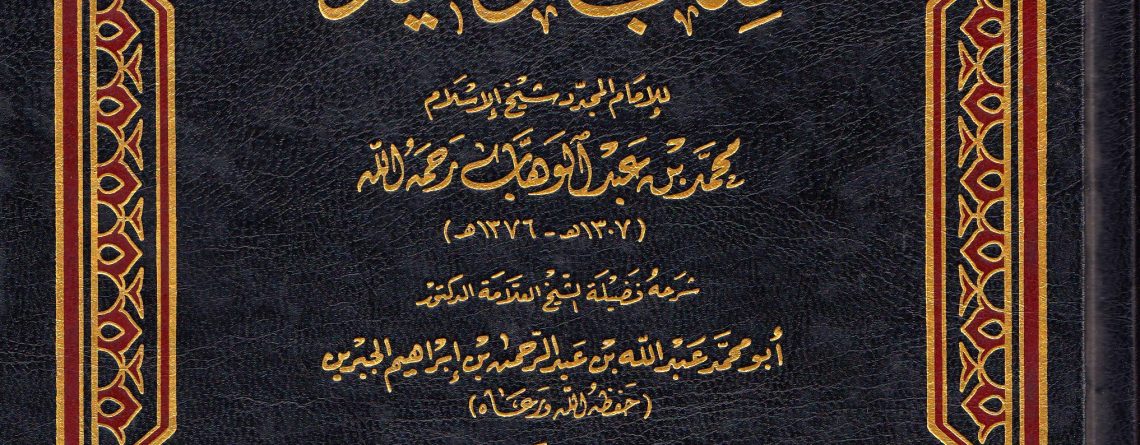 للإمام المجدد شيخ الإسلام
محمد بن عبد الوهاب رحمه الله
(١٣٠٧هـ - ١٣٧٦هـ)
شرحه فضيلة الشيخ العلامة الدكتور
أبو محمد عبد الله بن عبد الرحمن بن إبراهيم الجبرين
(حفظه الله ورعاه)